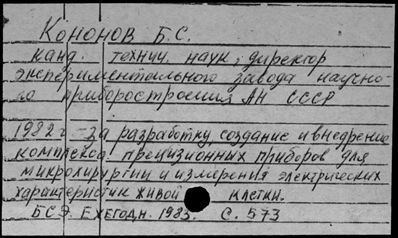 Кононов Б.С.
канд. технич. наук, директор
экспериментального завода научно-
го приборостроения АН СССР
1982 г. - за разработку, создание и внедрение
комплекса прецизионных приборов для
микрохирургии и измерения электрических
характеристик живой клетки.
БСЭ. Ежегодн. 1983. С. 573